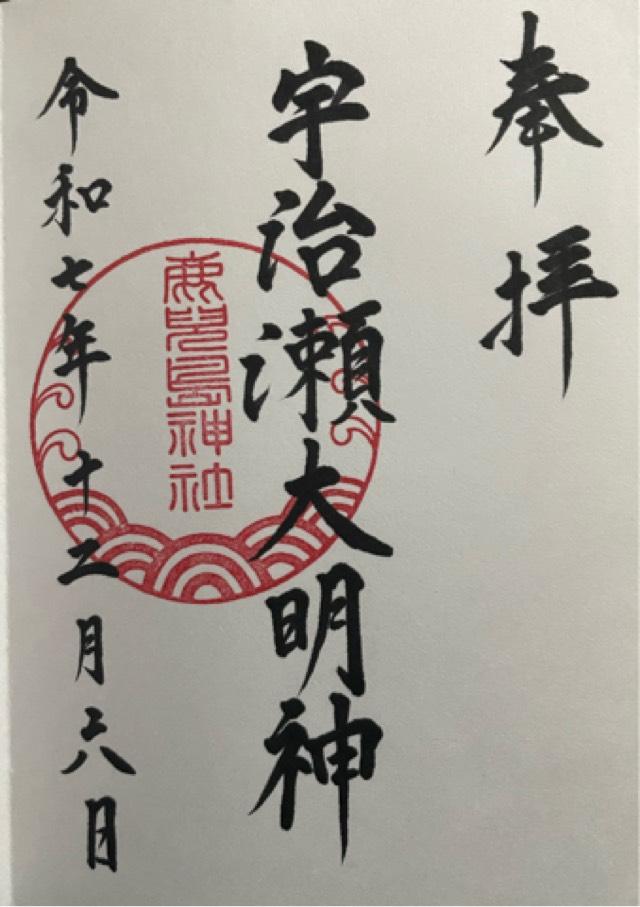 奉拝
宇治瀬大明神
鹿児島神社
令和七年十二月六日